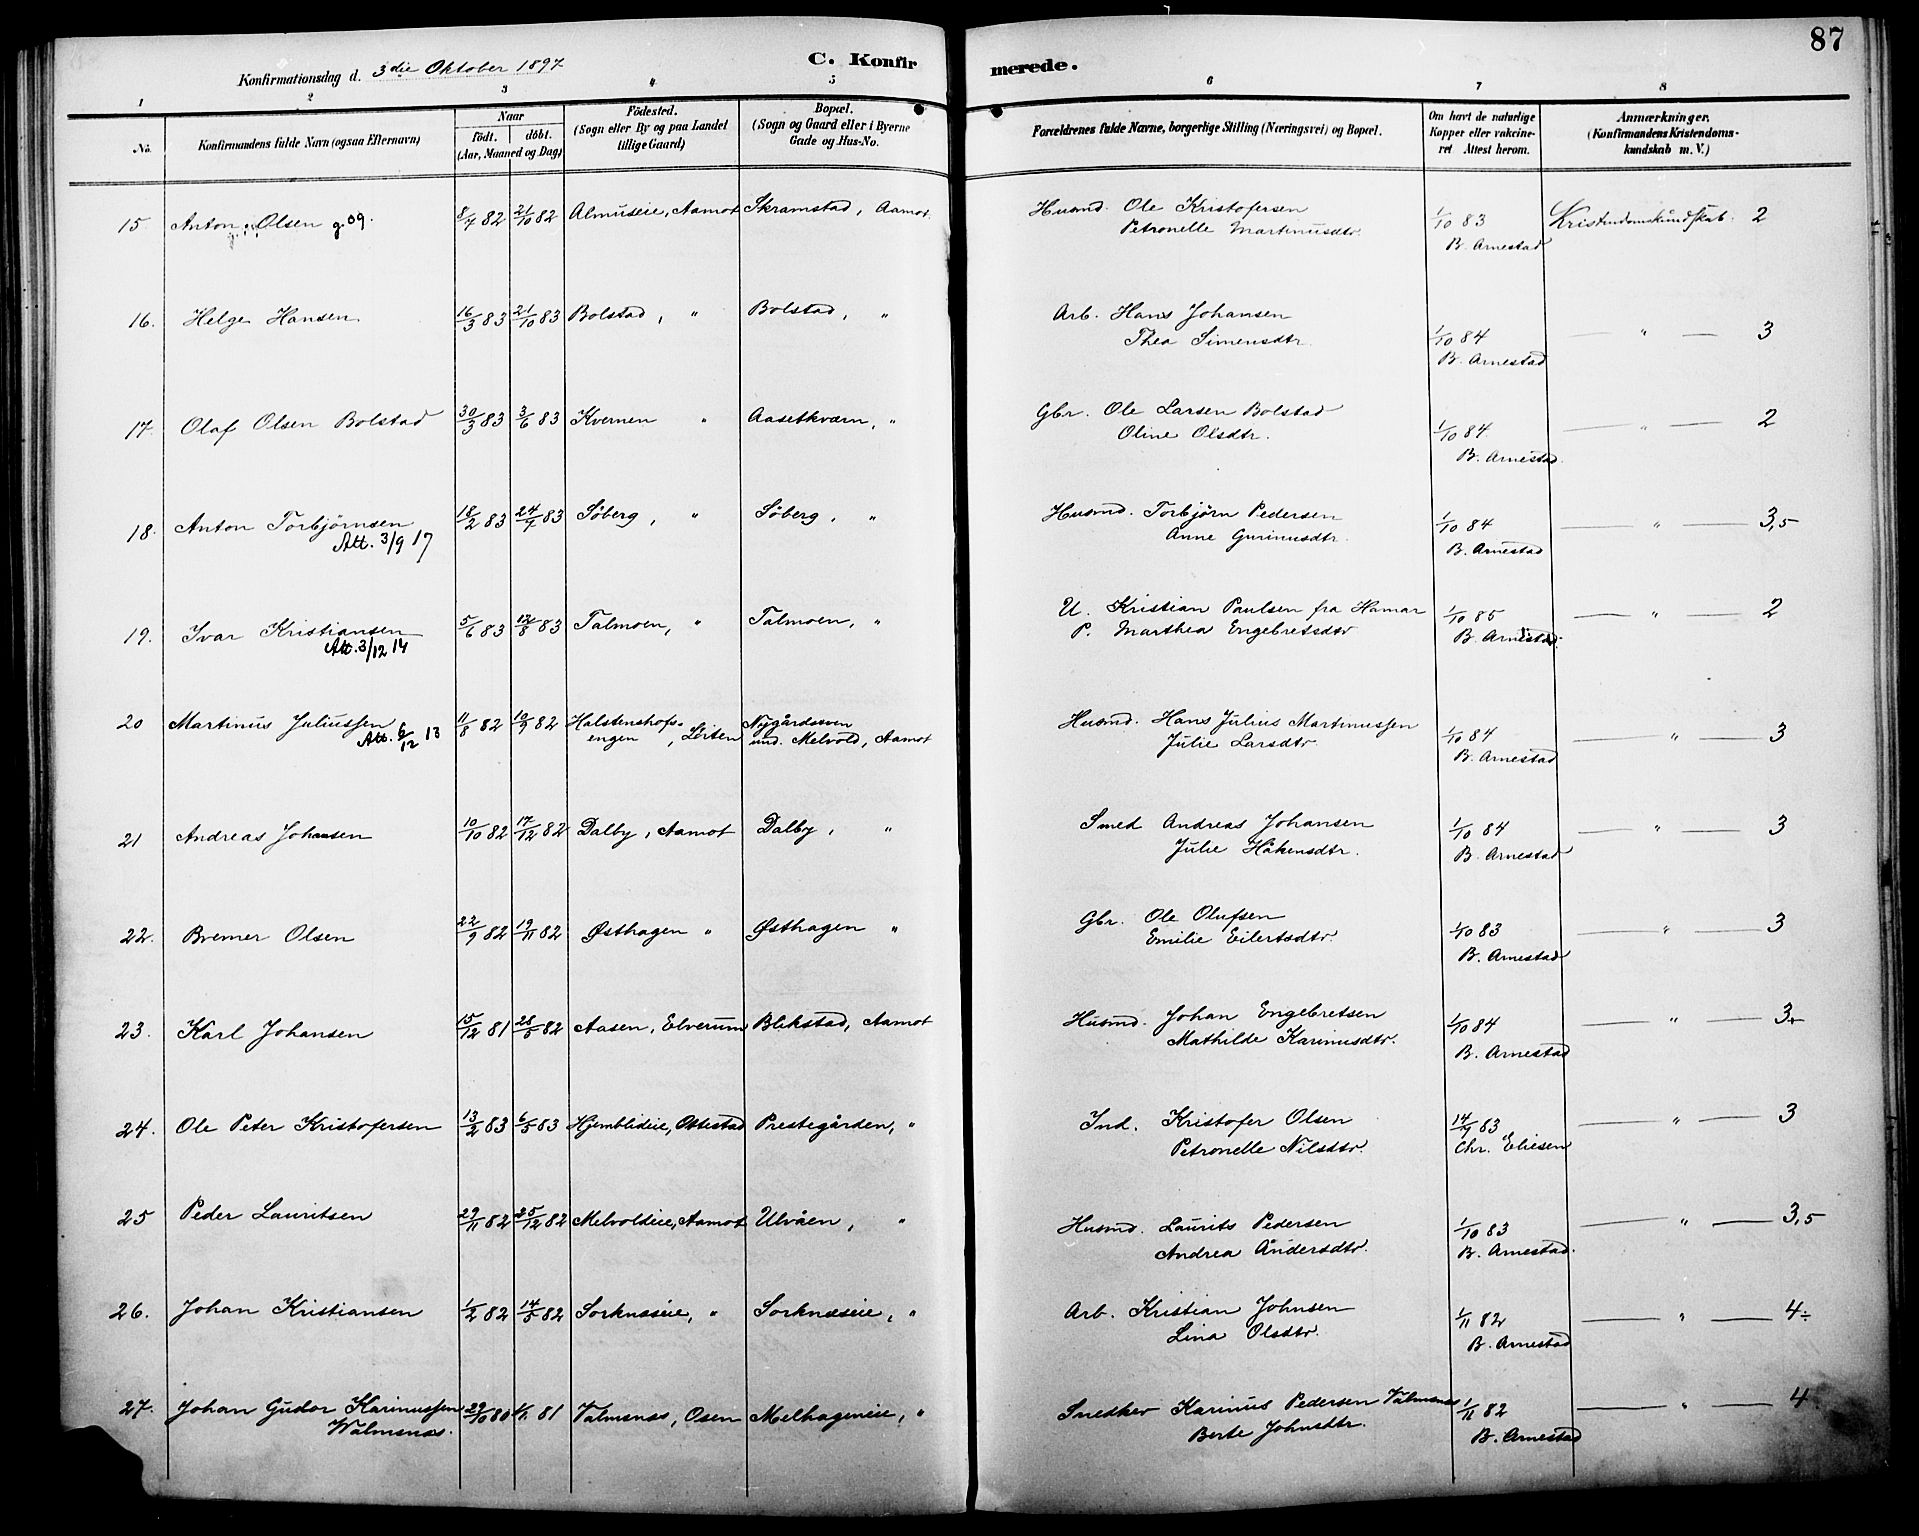 87
Konfirmationsdag d. 3die Oktober 1897
C. Konfirmerede.
1 2 3 4 5 6 7 8
No.
Konfirmandens fulde Navn (ogsaa Efternavn)
Naar
födt. döbt.
(Aar, Maaned og Dag)
Födested.
(Sogn eller By og paa Landet
tillige Gaard)
Bopæl.
(Sogn og Gaard eller i Byerne
Gade og Hus-No.
Forældrenes fulde Navne, borgerlige Stilling (Næringsvei) og Bopæl.
Om havt de naturlige
Kopper eller vakcine-
ret Attest herom.
Anmærkninger.
(Konfirmandens Kristendoms-
kundskab m. V.)
15. Anton Olsen g. 09. 8/7 82 21/10 82 Almuseie, Aamot Skramstad, Aamot. Husmd. Ole Kristofersen 1/10 83 Kristendomskundskab. 2
Petronelle Martinusdtr. B. Arnestad
16. Helge Hansen 16/3 83 21/10 83 Bolstad, " Bolstad, " Arb. Hans Johansen 1/10 84 " 3
Thea Simensdtr. B. Arnestad
17. Olaf Olsen Bolstad 30/3 83 3/6 83 Kvernen " Aasetkværn, " Gbr. Ole Larsen Bolstad 1/10 84 " 2
Oline Olsdtr. B. Arnestad.
18. Anton Torbjørnsen 18/2 83 24/7 83 Söberg, " Söberg, " Husmd. Torbjørn Pedersen 1/10 84 " 3,5
Att. 3/9 17 Anne Gurinusdtr. B. Arnestad
19. Ivar Kristiansen 5/6 83 12/8 83 Talmoen, " Talmoen, " U. Kristian Paulsen fra Hamar 1/10 85 " 2
Att. 3/12 14 P. Marthea Engebretsdtr B. Arnestad.
20 Martinus Juliussen 11/8 82 10/9 82 Halstenshofs- Nygårdssven Husmd. Hans Julius Martinussen 1/10 84 " 3
Att. 6/12 13 engen, Löiten und. Melvold, Aamot Julie Larsdtr. B. Arnestad
21 Andreas Johansen 10/10 82 17/12 82 Dalby, Aamot Dalby, " Smed Andreas Johansen 1/10 84 " 3
Julie Håkensdtr. B. Arnestad
22. Bremer Olsen 22/9 82 19/11 82 Østhagen " Østhagen " Gbr. Ole Olufsen 1/10 83 " 3
Emilie Eilertsdtr. B. Arnestad
23. Karl Johansen 15/12 81 28/5 82 Aasen, Elverum Blikstad, Aamot Husmd. Johan Engebretsen 1/10 84 " 3+
Mathilde Karinusdtr. B. Arnestad
24. Ole Peter Kristofersen 13/2 83 6/5 83 Hjemblideie, Ottestad Prestegården, " Ind. Kristofer Olsen 14/9 83 " 3
Petronelle Nilsdtr. Chr. Eliesen
25 Peder Lauritsen 29/11 82 25/12 82 Melvoldeie, Aamot Ulvåen, " Husmd. Laurits Pedersen 1/10 83 " 3,5
Andrea Andersdtr. B. Arnestad.
26. Johan Kristiansen 1/2 82 14/5 82 Sorknæseie, " Sorknæseie, " Arb. Kristian Johnsen 1/11 82 " 4÷
Lina Olsdtr. B. Arnestad
27. Johan Gudor Karinussen 29/10 80 1/1 81 Valmsnæs, Osen Melhageneie, " Snedker Karinus Pedersen Valmsnæs 1/11 82 " 4
Walmsnæs. Berte Johnsdtr. B. Arnestad